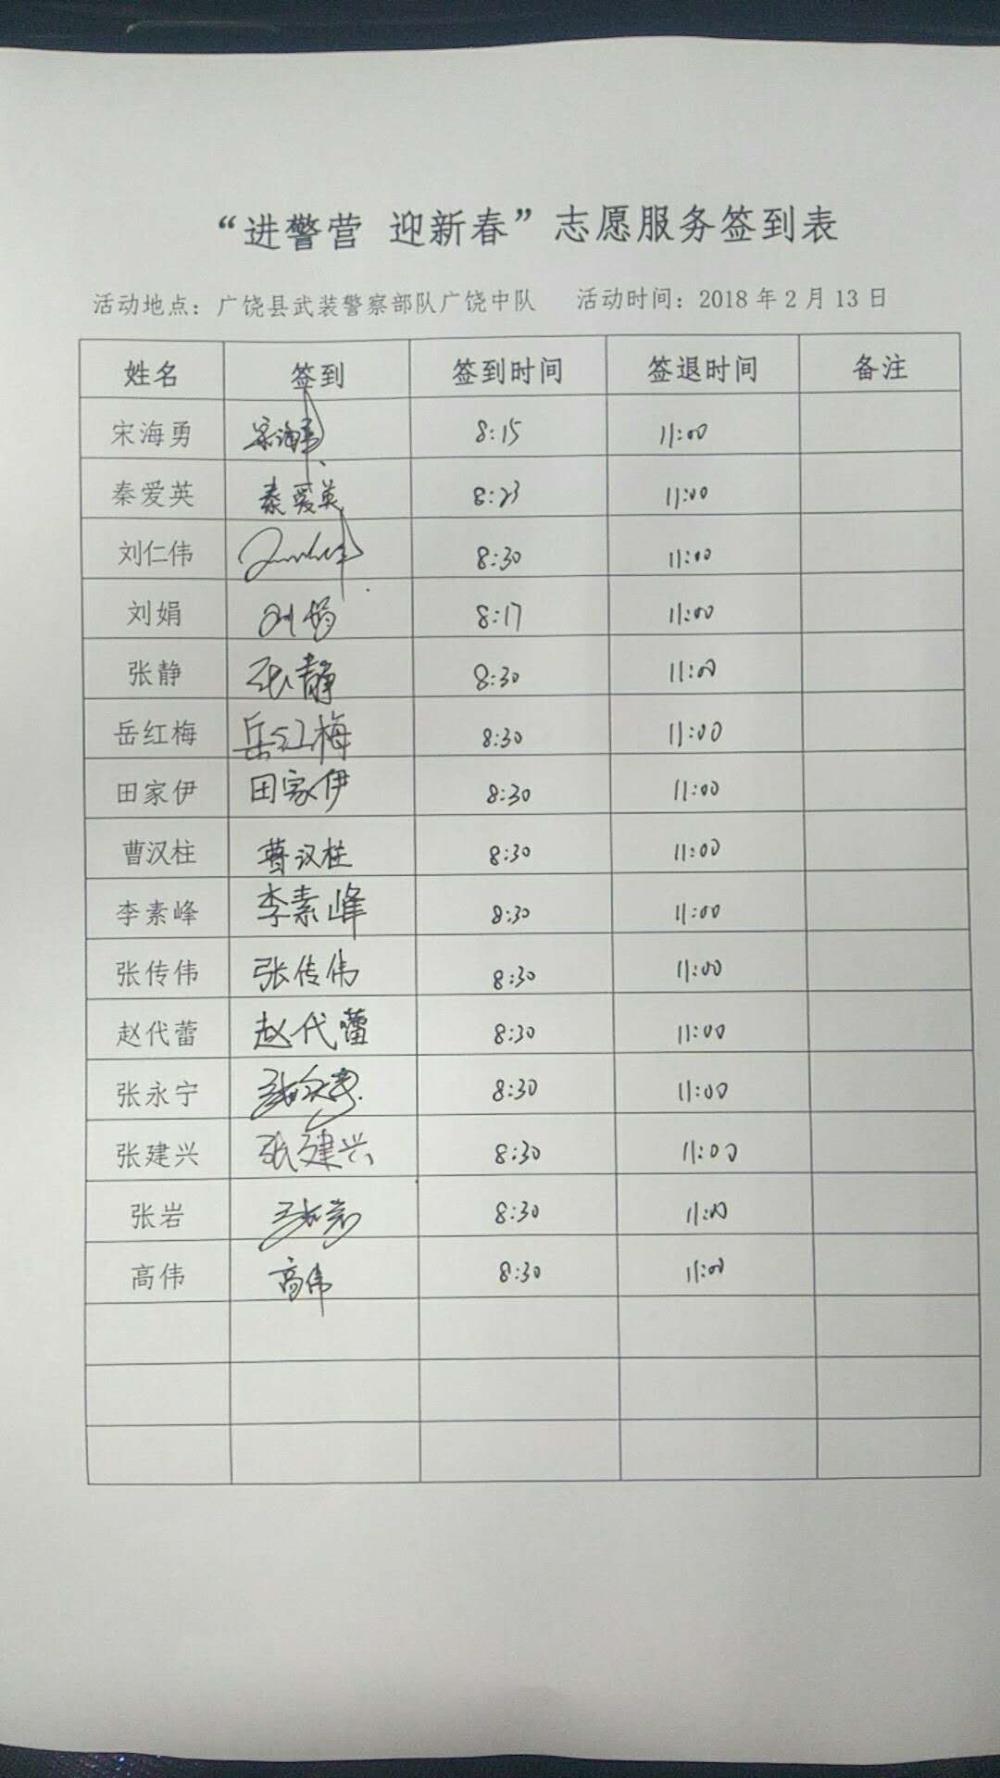 “进警营 迎新春”志愿服务签到表
活动地点：广饶县武装警察部队广饶中队 活动时间：2018 年 2 月 13 日
姓名 签到 签到时间 签退时间 备注
宋海勇 宋海勇 8:15 11:00
秦爱英 秦爱英 8:23 11:00
刘仁伟 8:30 11:00
刘娟 刘娟 8:17 11:00
张静 张静 8:30 11:00
岳红梅 岳红梅 8:30 11:00
田家伊 田家伊 8:30 11:00
曹汉柱 曹汉柱 8:30 11:00
李素峰 李素峰 8:30 11:00
张传伟 张传伟 8:30 11:00
赵代蕾 赵代蕾 8:30 11:00
张永宁 张永宁 8:30 11:00
张建兴 张建兴 8:30 11:00
张岩 张岩 8:30 11:00
高伟 高伟 8:30 11:00